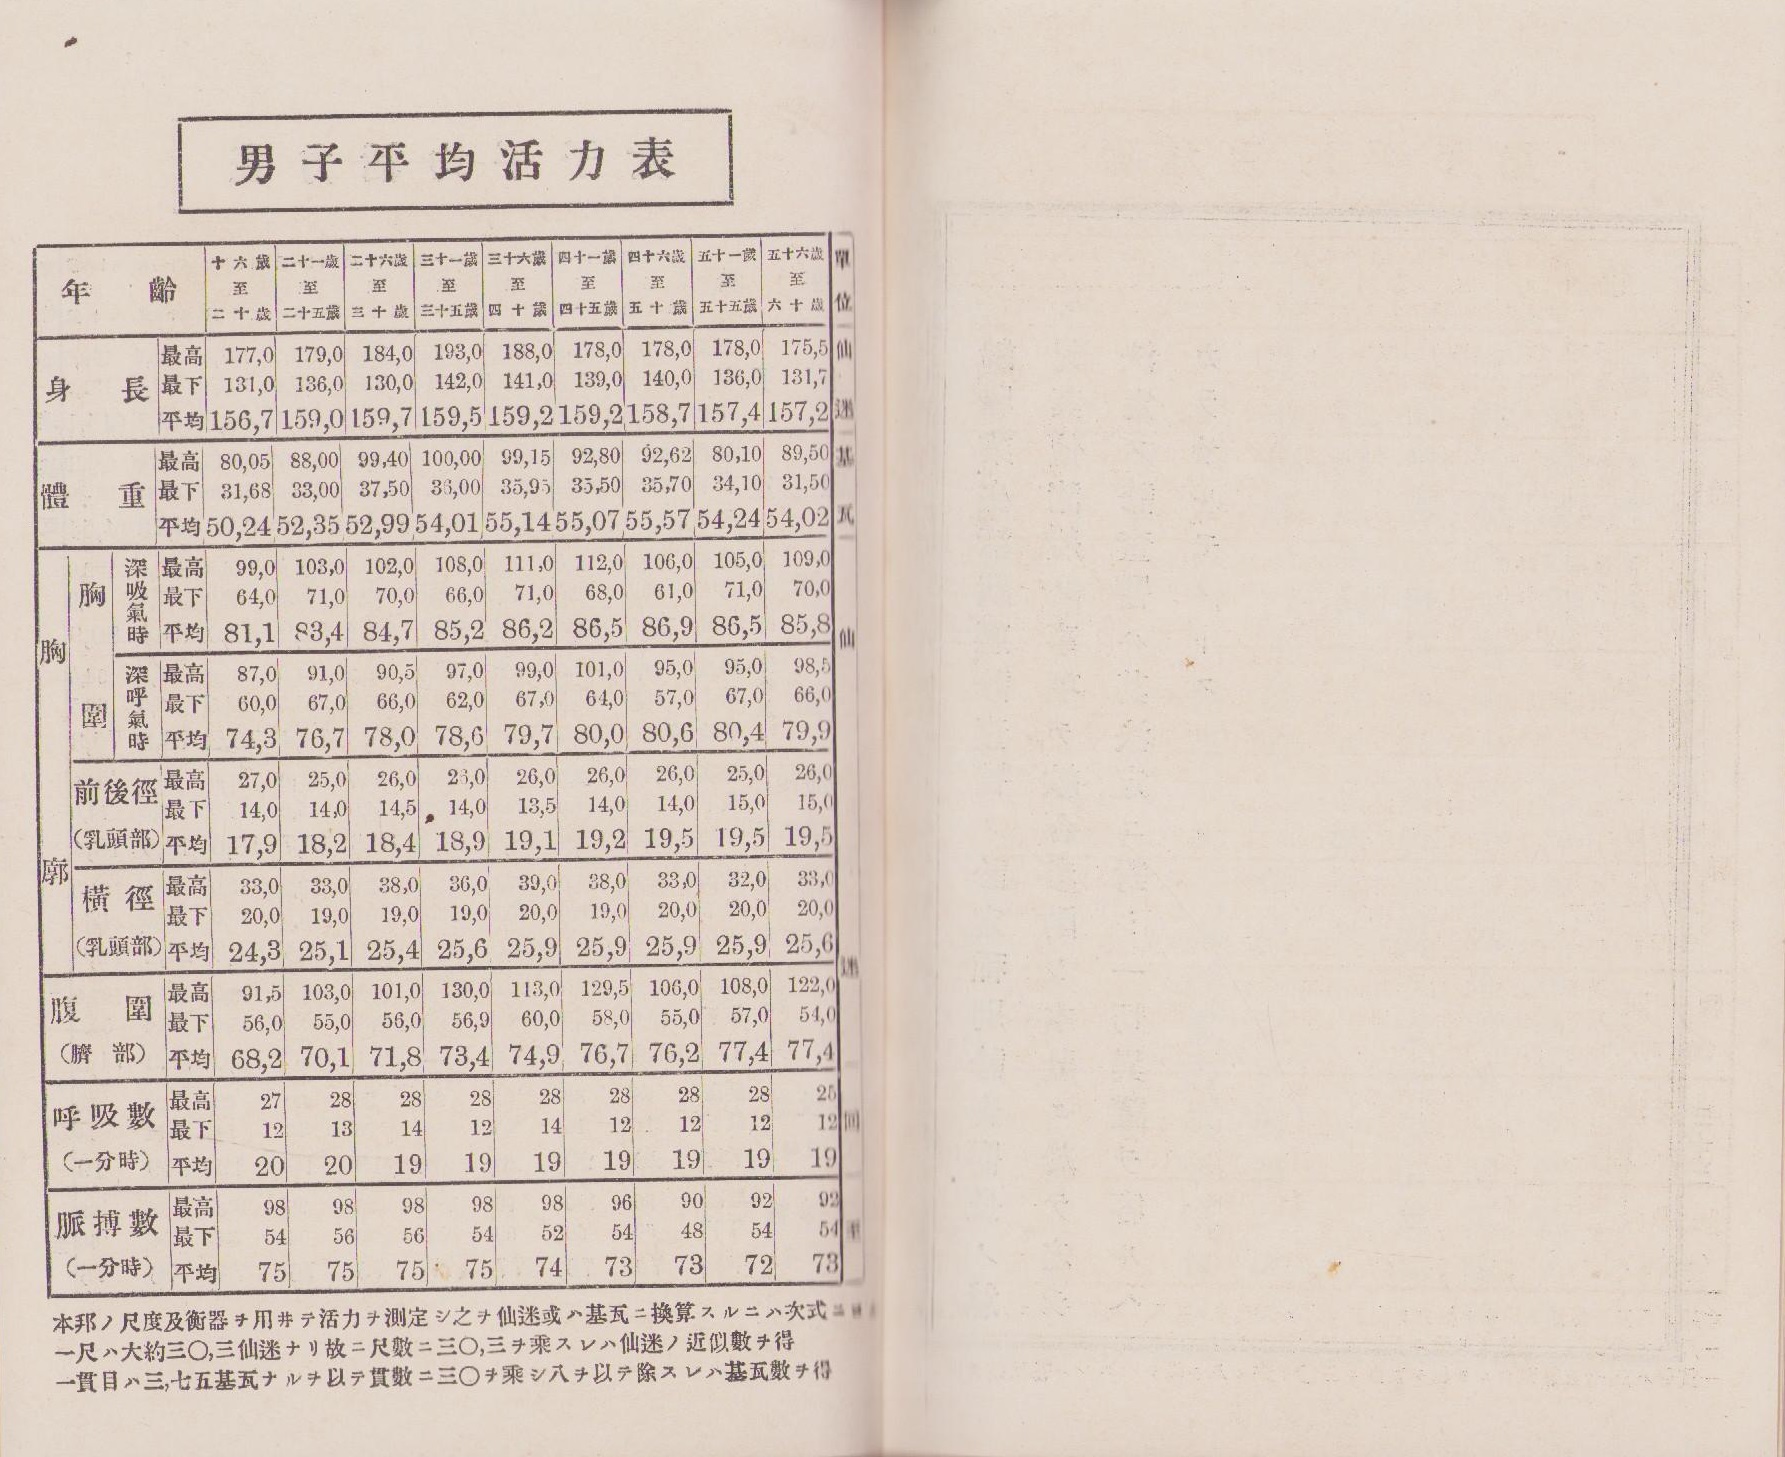 男子平均活力表
年齡 十六歲至二十歲 二十一歲至二十五歲 二十六歲至三十歲 三十一歲至三十五歲 三十六歲至四十歲 四十一歲至四十五歲 四十六歲至五十歲 五十一歲至五十五歲 五十六歲至六十歲 單位
身長 最高 177,0 179,0 184,0 193,0 188,0 178,0 178,0 178,0 175,5 仙
最下 131,0 136,0 130,0 142,0 141,0 139,0 140,0 136,0 131,7
平均 156,7 159,0 159,7 159,5 159,2 159,2 158,7 157,4 157,2 迷
體重 最高 80,05 88,00 99,40 100,00 99,15 92,80 92,62 80,10 89,50 基
最下 31,68 33,00 37,50 36,00 35,95 35,50 35,70 34,10 31,50
平均 50,24 52,35 52,99 54,01 55,14 55,07 55,57 54,24 54,02 瓦
胸廓 胸圍 深吸氣時 最高 99,0 103,0 102,0 108,0 111,0 112,0 106,0 105,0 109,0
最下 64,0 71,0 70,0 66,0 71,0 68,0 61,0 71,0 70,0
平均 81,1 83,4 84,7 85,2 86,2 86,5 86,9 86,5 85,8 仙
深呼氣時 最高 87,0 91,0 90,5 97,0 99,0 101,0 95,0 95,0 98,5
最下 60,0 67,0 66,0 62,0 67,0 64,0 57,0 67,0 66,0
平均 74,3 76,7 78,0 78,6 79,7 80,0 80,6 80,4 79,9
前後徑(乳頭部) 最高 27,0 25,0 26,0 26,0 26,0 26,0 25,0 26,0
最下 14,0 14,0 14,5 14,0 13,5 14,0 14,0 15,0 15,0
平均 17,9 18,2 18,4 18,9 19,1 19,2 19,5 19,5 19,5
橫徑(乳頭部) 最高 33,0 33,0 38,0 36,0 39,0 38,0 33,0 32,0 33,0
最下 20,0 19,0 19,0 19,0 20,0 19,0 20,0 20,0 20,0
平均 24,3 25,1 25,4 25,6 25,9 25,9 25,9 25,9 25,6 迷
腹圍(臍部) 最高 91,5 103,0 101,0 130,0 113,0 129,5 106,0 108,0 122,0
最下 56,0 55,0 56,0 56,9 60,0 58,0 55,0 57,0 54,0
平均 68,2 70,1 71,8 73,4 74,9 76,7 76,2 77,4 77,4
呼吸數(一分時) 最高 27 28 28 28 28 28 28 28
最下 12 13 14 12 14 12 12 12 12 回
平均 20 20 19 19 19 19 19 19 19
脈搏數(一分時) 最高 98 98 98 98 98 96 90 92 92
最下 54 56 56 54 52 54 48 54 54
平均 75 75 75 75 74 73 73 72 73
本邦ノ尺度及衡器ヲ用井テ活力ヲ測定シ之ヲ仙迷或ハ基瓦ニ換算スルニハ次式ニ
一尺ハ大約三〇,三仙迷ナリ故ニ尺數ニ三〇,三ヲ乘スレハ仙迷ノ近似數ヲ得
一貫目ハ三,七五基瓦ナルヲ以テ貫數ニ三〇ヲ乘シ八ヲ以テ除スレハ基瓦數ヲ得